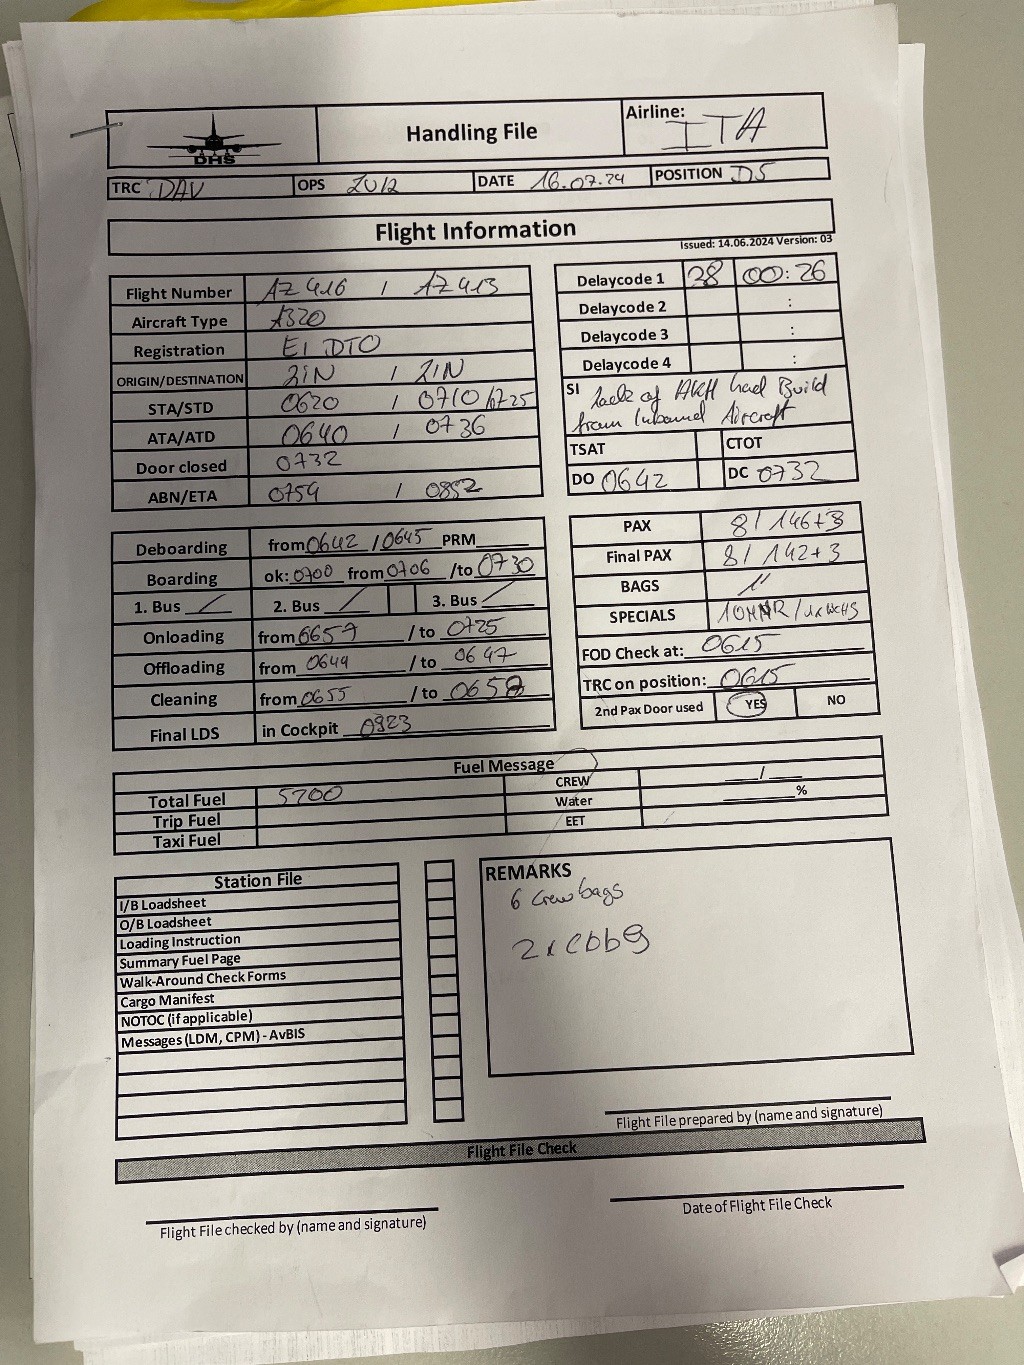 DHS
Handling File
Airline: ITA
TRC DAV OPS DATE 16.07.24 POSITION D5
Flight Information
Issued: 14.06.2024 Version: 03
Flight Number AZ 416 / AZ 413
Aircraft Type A320
Registration EI DTO
ORIGIN/DESTINATION LIN / LIN
STA/STD 0620 / 0710 /0725
ATA/ATD 0640 / 0736
Door closed 0732
ABN/ETA 0754 / 0852
Delaycode 1 28 00:26
Delaycode 2 :
Delaycode 3 :
Delaycode 4 :
SI lack of AKH had Build
from Inbound Aircraft
TSAT CTOT
DO 0642 DC 0732
Deboarding from 0642 / 0645 PRM
Boarding ok: 0700 from 0706 /to 0730
1. Bus / 2. Bus / 3. Bus /
Onloading from 0657 / to 0725
Offloading from 0644 / to 0647
Cleaning from 0655 / to 0658
Final LDS in Cockpit 0923
PAX 8 / 146+3
Final PAX 8 / 142+3
BAGS
SPECIALS
FOD Check at: 0615
TRC on position: 0615
2nd Pax Door used YES NO
Fuel Message
Total Fuel 5700 CREW /
Trip Fuel Water %
Taxi Fuel EET
Station File
I/B Loadsheet
O/B Loadsheet
Loading Instruction
Summary Fuel Page
Walk-Around Check Forms
Cargo Manifest
NOTOC (if applicable)
Messages (LDM, CPM) - AvBIS
REMARKS
6 Crew bags
2x cbbg
Flight File prepared by (name and signature)
Flight File Check
Flight File checked by (name and signature)
Date of Flight File Check